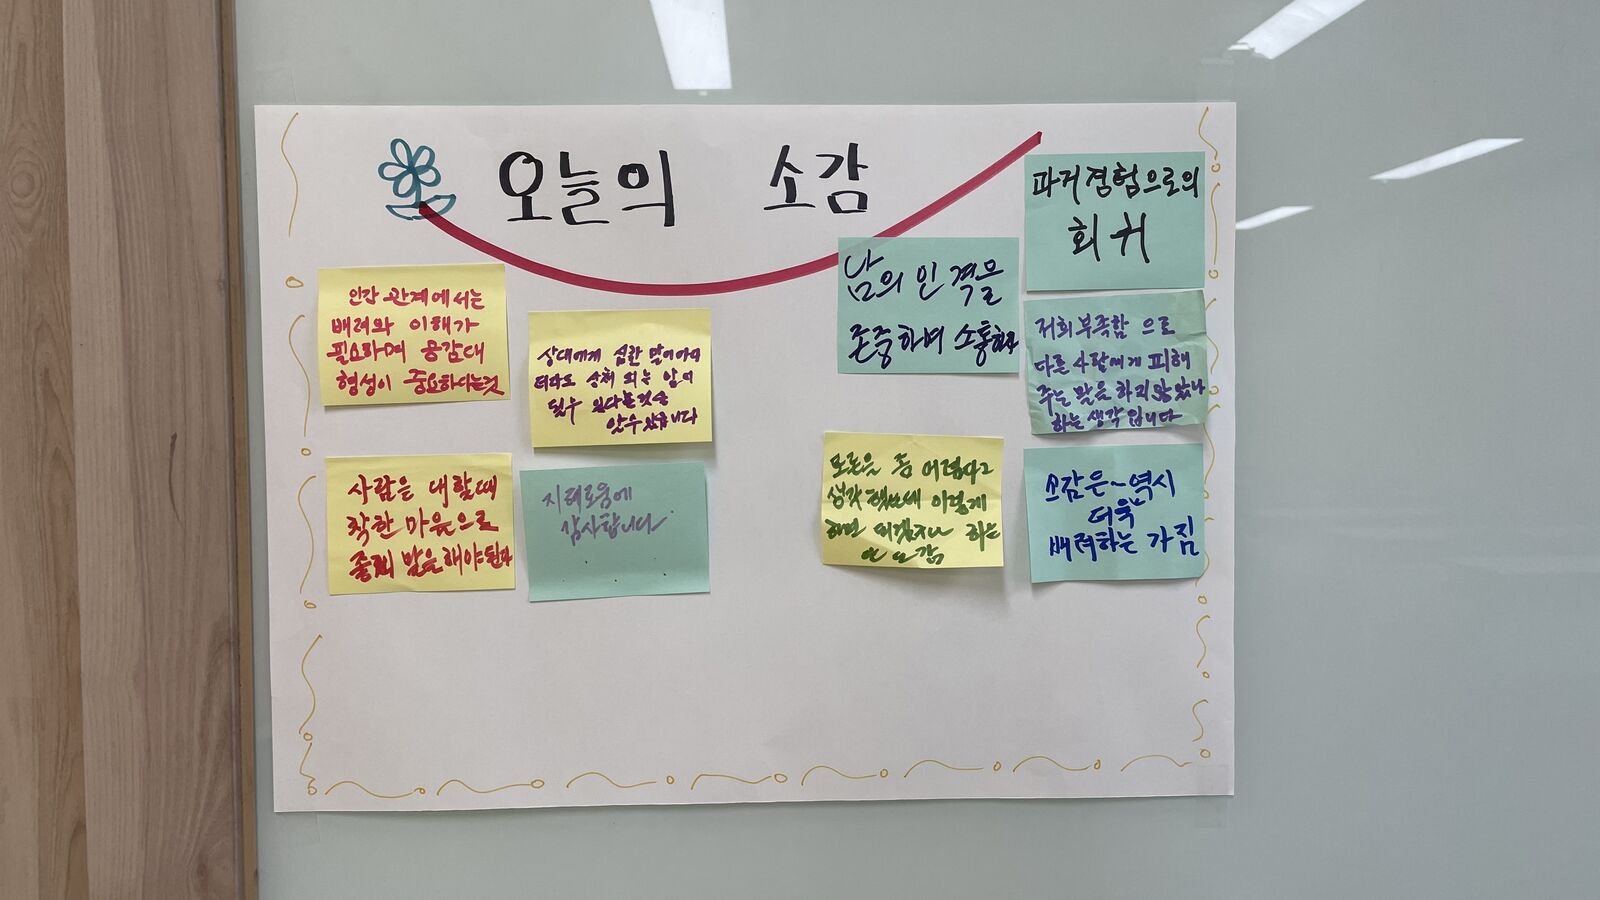 오늘의 소감
인간 관계에서는
배려와 이해가
필요하며 공감대
형성이 중요하다는것
상대에게 심한 말이아니
더라도 상처 되는 말이
될수 있다는것을
알수있읍니다
사람은 대할때
착한 마음으로
좋게 말을해야된다
지혜로움에
감사합니다.
남의 인격을
존중하며 소통하자
과거경험으로의
회귀
저희부족함 으로
다른 사람에게 피해
주는 말을 하지않았나
하는생각입니다
토론은 좀 어렵다고
생각했는데 이렇게
하면 되겠지나 하는
소감
소감은~역시
더욱
배려하는 가짐